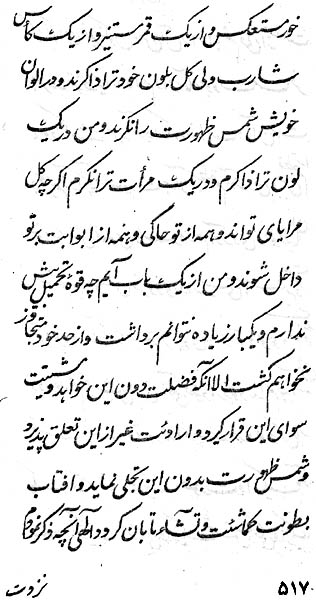 خور مستعکس و از یک قمر مستنیر و از یک کأس
شارب ولی کل بلون خود ترا ذاکرند و در الوان
خویش شمس ظهورت را نگرند و من در یک
لون ترا ذاکرم و در یک مرآت ترا نگرم اگر چه کل
مرایای تواند و همه از تو حاکی و همه از ابوابت بر تو
داخل شوند و من از یک باب آیم چه قوه تحمل بیش
ندارم و یکبار زیاده نتوانم برداشت و از حد خود متجاوز
نخواهم گشت الا آنکه فضلت دون این خواهد و مشیتت
سوای این قرار گیرد و ارادتت غیر از این تعلق پذیرد
و شمس ظهورت بدون این تجلی نماید و افتاب
بطونت کما شئت و تشاء تابان گردد الهی آنچه ذکر نموده‌ام
۵۱۷ نزدت